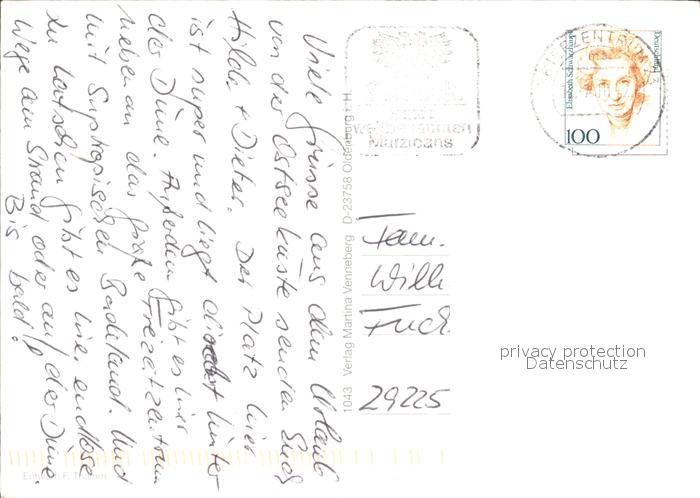 Viele Grüsse aus dem Urlaub
von der Ostseeküste senden Euch
Hilde + Dieter. Der Platz hier
ist super und liegt direkt hinter
der Düne. Außerdem gibt es hier
nebenan das große Freizeitzentrum
mit Suptropischen Badeland. Und
zu laufen gibt es hier endlose
Wege am Strand oder auf der Düne.
Bis bald!
1043 Verlag Martina Venneberg D-23758 Oldenburg i. H.
weltbekannten
Marzipans
BRIEFZENTRUM 23
Elisabeth Schwarzhaupt
100
Fam.
Willi
Fuch
29225
privacy protection
Datenschutz